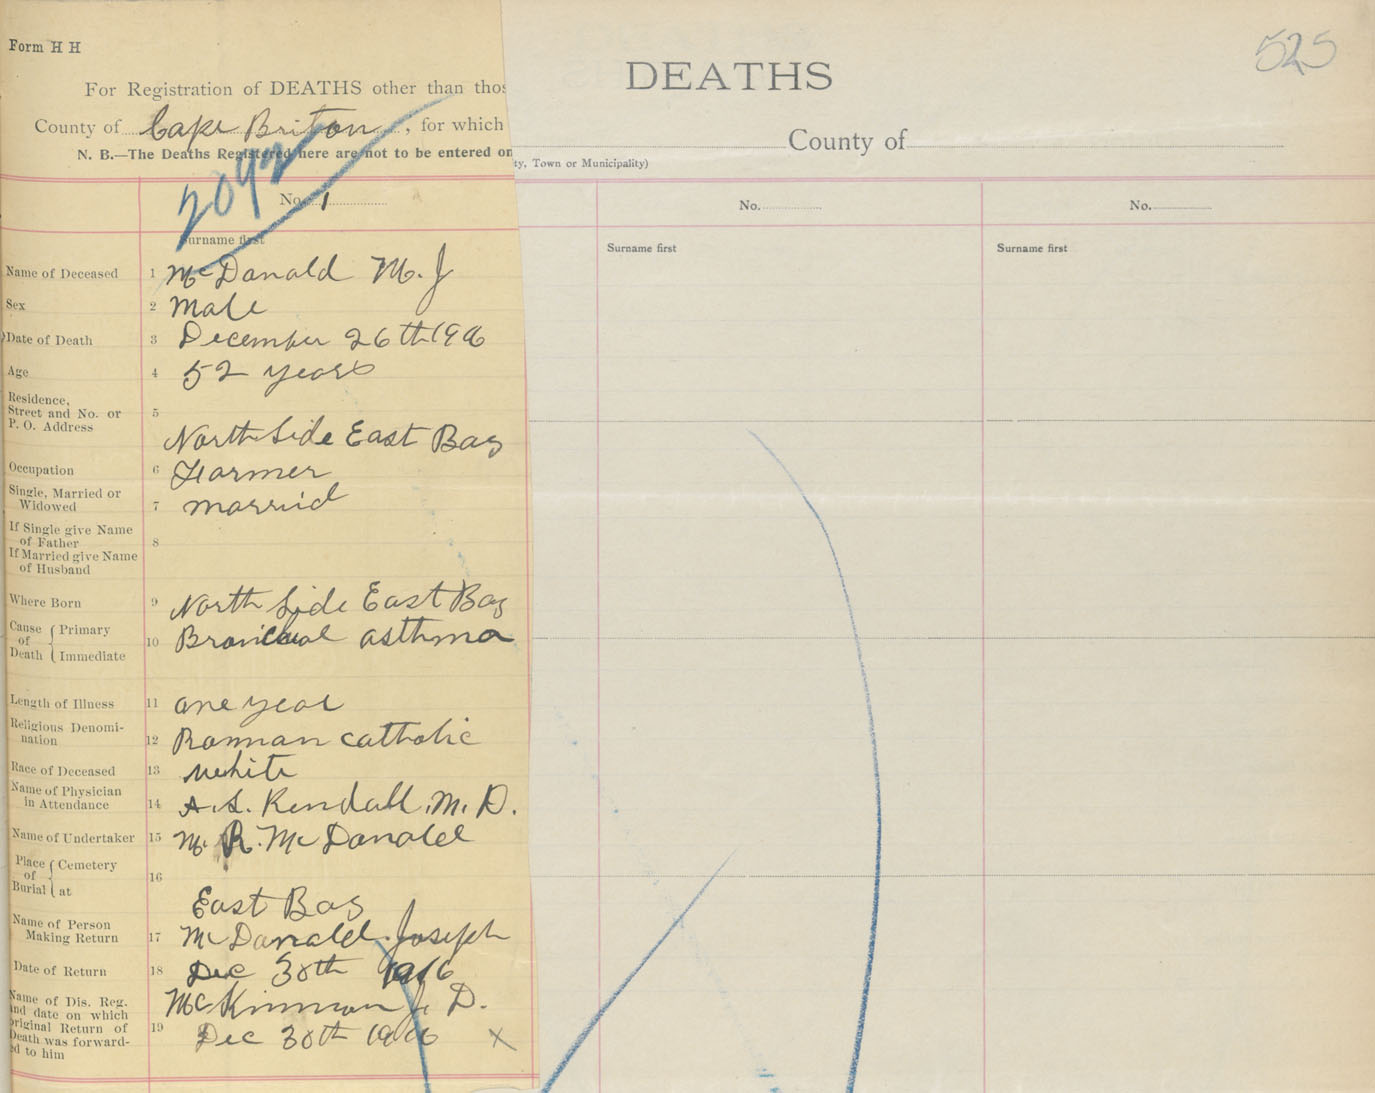 Form H H
525
For Registration of DEATHS other than thos
DEATHS
County of Cape Briton, for which
County of
N. B.—The Deaths Registered here are not to be entered on
ty, Town or Municipality)
2092
No. 1
No.
No.
Surname first
Surname first
Surname first
Name of Deceased 1 McDonald M. J
Sex 2 Male
Date of Death 3 December 26th 1916
Age 4 52 years
Residence,
Street and No. or 5
P. O. Address
North Side East Bay
Occupation 6 Farmer
Single, Married or
Widowed 7 married
If Single give Name
of Father 8
If Married give Name
of Husband
Where Born 9 North Side East Bay
Cause of Death { Primary 10 Bronichial asthma
Immediate
Length of Illness 11 one year
Religious Denomi-
nation 12 Roman catholic
Race of Deceased 13 white
Name of Physician
in Attendance 14 A. S. Kendall. M. D.
Name of Undertaker 15 M. R. McDonald
Place of Burial { Cemetery 16
at
East Bay
Name of Person
Making Return 17 McDonald Joseph
Date of Return 18 Dec 30th 1916
Name of Dis. Reg. McKinnon J. D.
and date on which
original Return of 19 Dec 30th 1916 x
Death was forward-
ed to him